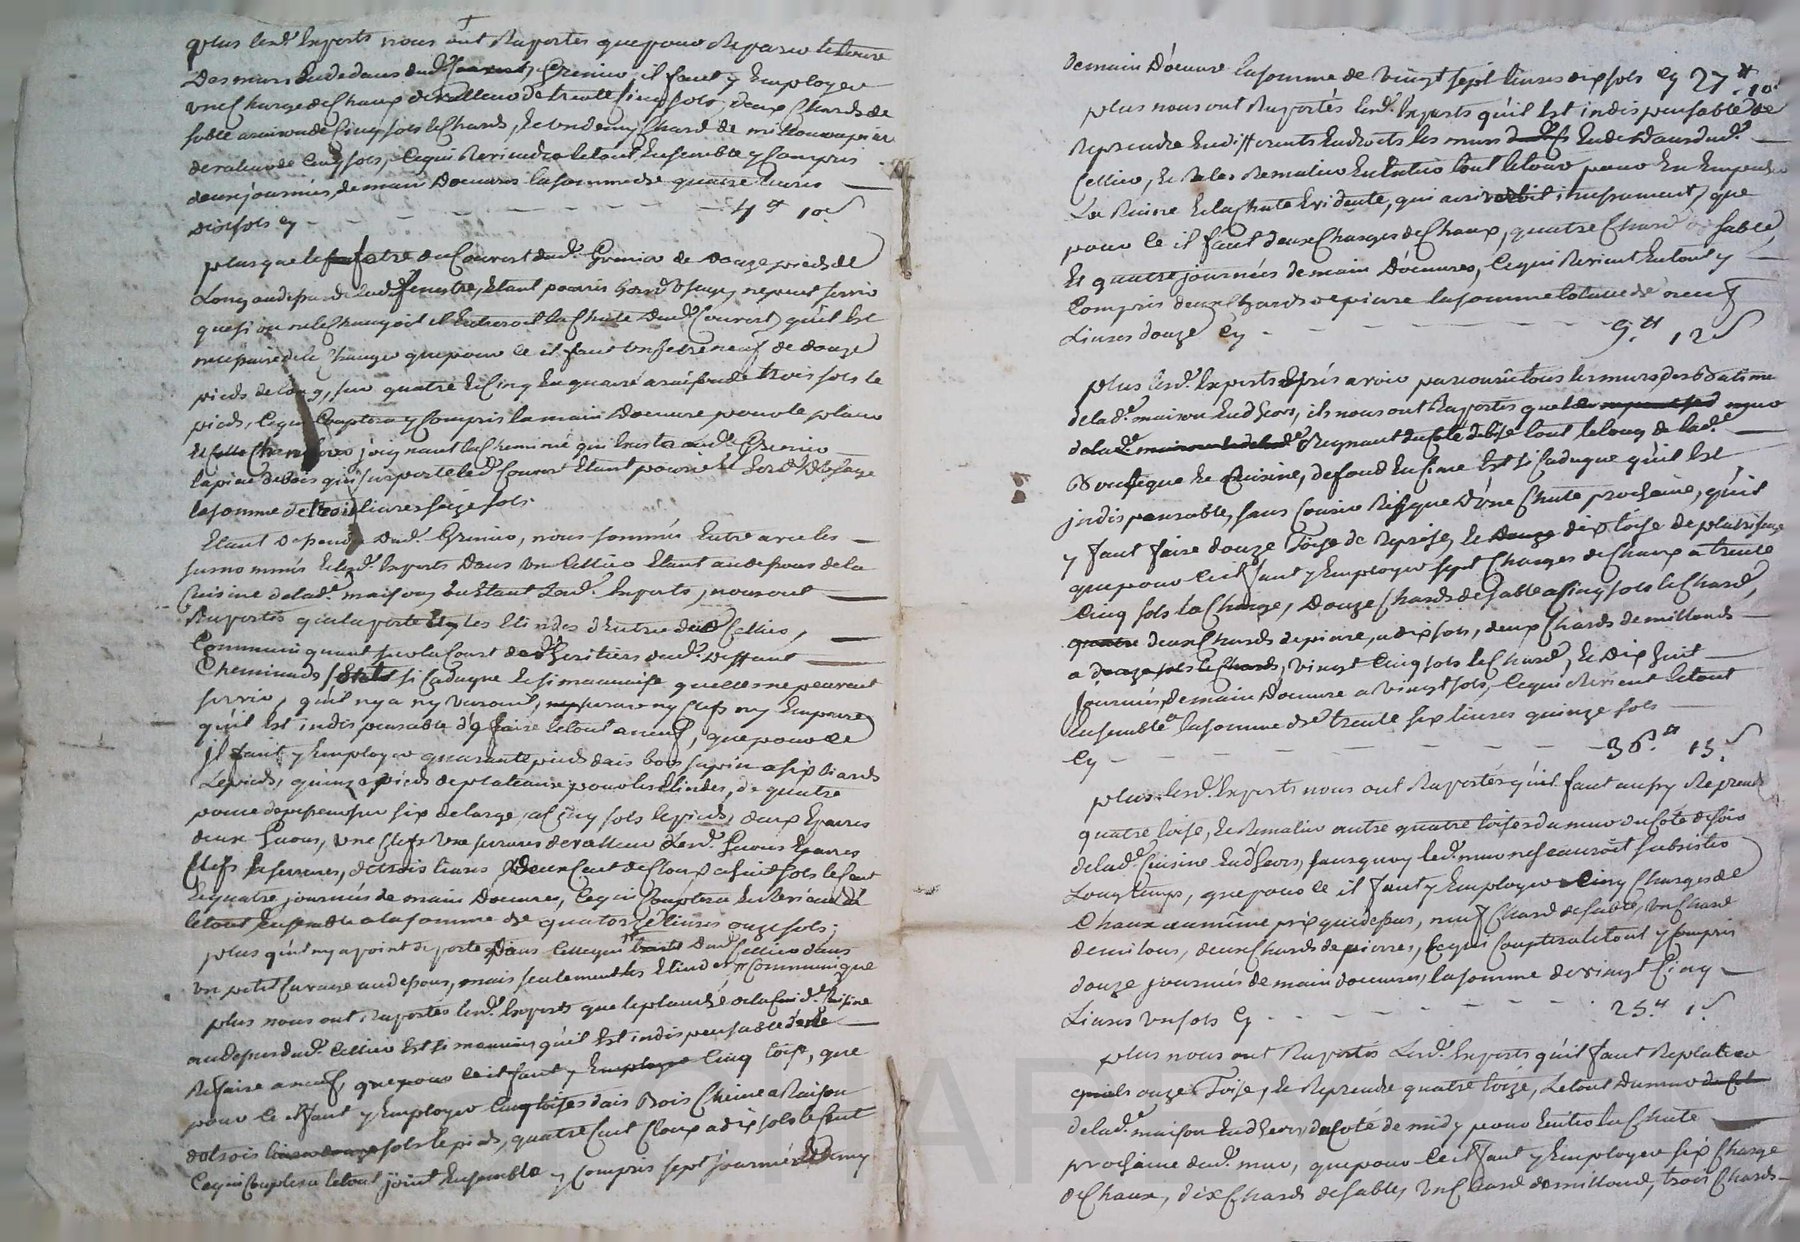 plus lesd. Experts nous ont Raportés que pour Reparer le tour
Des murs Endedans dud. Grenier, il faut y Employer
une Charge de Chaux de valleur de trente cinq sols, deux Chards de
sable a raison de cinq sols le Chard, et un demy Chard de
de valeur de cinq sols, ce qui Reviendra le tout Ensemble y Compris
deux journées de main Doeuvres la somme de quatre livres
dix sols cy - - - - 4 lt 10 s
plus que le fetre du Couvert dud. Grenier de Douze pieds de
Long au dessus de lad. fenestre, Etant pourri hors d'usage, ne peut servir
que si on ne le Changeoit il la Chute Dud. Couvert, qu'il Est
necessaire de le Changer que pour ce il faut un fetre neuf de douze
pieds de long, sur quatre et Cinq En quarré a raison de trois sols le
pied, Ce qui Couptera y Compris la main Doeuvre pour le placer
joignant la Cheminée qui Existe aud. Grenier
la piece de bois qui suporte led. Couvert Etant pourrie et hors d'usage
la somme de trois livres seize sols.
Etant Dessendu Dud. Grenier, nous sommes Entré avec les
surnommés et lesd. Experts Dans un Cellier Etant au dessous de la
Cuisine de lad. maison, ou Etant Lesd. Experts, nous ont
Raportés que la porte et les Elindes d'Entrée dud. Cellier,
Communiquant sur la Court des héritiers dud. Deffunt
Cheminade si Caduque et si mauvaise quelles ne peuvent
servir, qu'il n'y a ny verouil, ny serrure ny Clefs ny Emparre
qu'il Est indispensable d'y faire le tout a neuf, que pour ce
Il faut y Employer quarante pieds dais bois sapin a six liards
Le pieds, quinze pieds de plateaux pour les Elindes, de quatre
pouce d'epesseur sur six de large, a Cinq sols le pieds, deux Eparres
deux Guons, une Clefs une serrures de valleur Lesd. Guons Eparres
Clefs et serrures, de trois livres Deux Cent de Cloux a huit sols le Cent
Et quatre journées de main Doeuvres, Ce qui Couptera et Reviendra
le tout Ensemble a la somme de quatorze livres onze sols;
plus qu'il n'y a point de porte Dans Celle qui dud. Cellier dans
un petit Caveau au dessous, mais seulement les Elindes Communique
plus nous ont Raportés lesd. Experts que le planché de la susd. Cuisine
au dessus dud. Cellier Est si mauvais qu'il Est indispensable de le
Refaire a neuf, que pour ce il faut y Employer Cinq toise, que
pour ce il faut y Employer Cinq toises dais Bois Chene a Raison
de trois sols le pied, quatre Cent Cloux a dix sols le Cent
Ce qui Couptera le tout joint Ensemble y Compris sept journées et Demy
de main Doeuvre la somme de Vingt sept livres dix sols cy 27 lt 10 s
plus nous ont Raportés lesd. Experts qu'il Est indispensable de
Reprendre En differents Endroits les murs Endedans dud.
Cellier, Et de les Remailler En Entier tout le tour pour En Empecher
La Ruine Et la Chute Evidente, qui arriveroit incessament, que
pour ce il faut deux Charges de Chaux, quatre Chard de sable,
Et quatre journées de main Doeuvres, Ce qui Revient En tout y
Compris deux Chards de pierre la somme totale de neuf
Livres douze cy - - - - 9 lt 12 s
plus lesd. Experts aprés avoir parcouru tous les murs des Batiments
de lad. maison Endehors, ils nous ont Raportés que le mur
de lad. Regnant du coté de bise tout le long de lad.
Boutique et Cuisine, de fond En Cime Est si Caduque qu'il Est
indispensable, sans Courir Risque D'une Chute prochaine, qu'il
y faut faire douze Toise de Reprise, et dix toise de platrissage
que pour ce il faut y Employer sept Charges de Chaux a trente
Cinq sols la Charge, Douze Chards de sable a Cinq sols le Chard,
deux Chards de piere, a dix sols, deux Chards de millouds
a vingt Cinq sols le Chard, Et Dix huit
journées De main Doeuvre a Vingt sols, Ce qui Revient le tout
Ensemble la somme de trente six livres quinze sols
Cy - - - - 36 lt 15 s
plus lesd. Experts nous ont Raportés qu'il faut aussy Reprendre
quatre toise, Et Remailler autre quatre toises du mur du coté de soir
de lad. Cuisine Endehors, sans quoy led. mur ne scauroit subsister
Longtemps, que pour ce il faut y Employer Cinq Charges de
Chaux au même prix que dessus, neuf Chard de sable, un Chard
de milous, deux Chards de pierres, Ce qui Couptera le tout y Compris
douze journées de main doeuvres, la somme de vingt Cinq
Livres un sols Cy - - - - 25 lt 1 s
plus nous ont Raportés Lesd. Experts qu'il faut Replatrer
onze Toise, Et Reprendre quatre toize, Le tout Du mur
de lad. maison Endehors du coté de midy pour Eviter la Chute
prochaine dud. mur, que pour Ce il faut y Employer six Charge
de Chaux, dix Chards de sable, un Chard de milloud, trois Chards